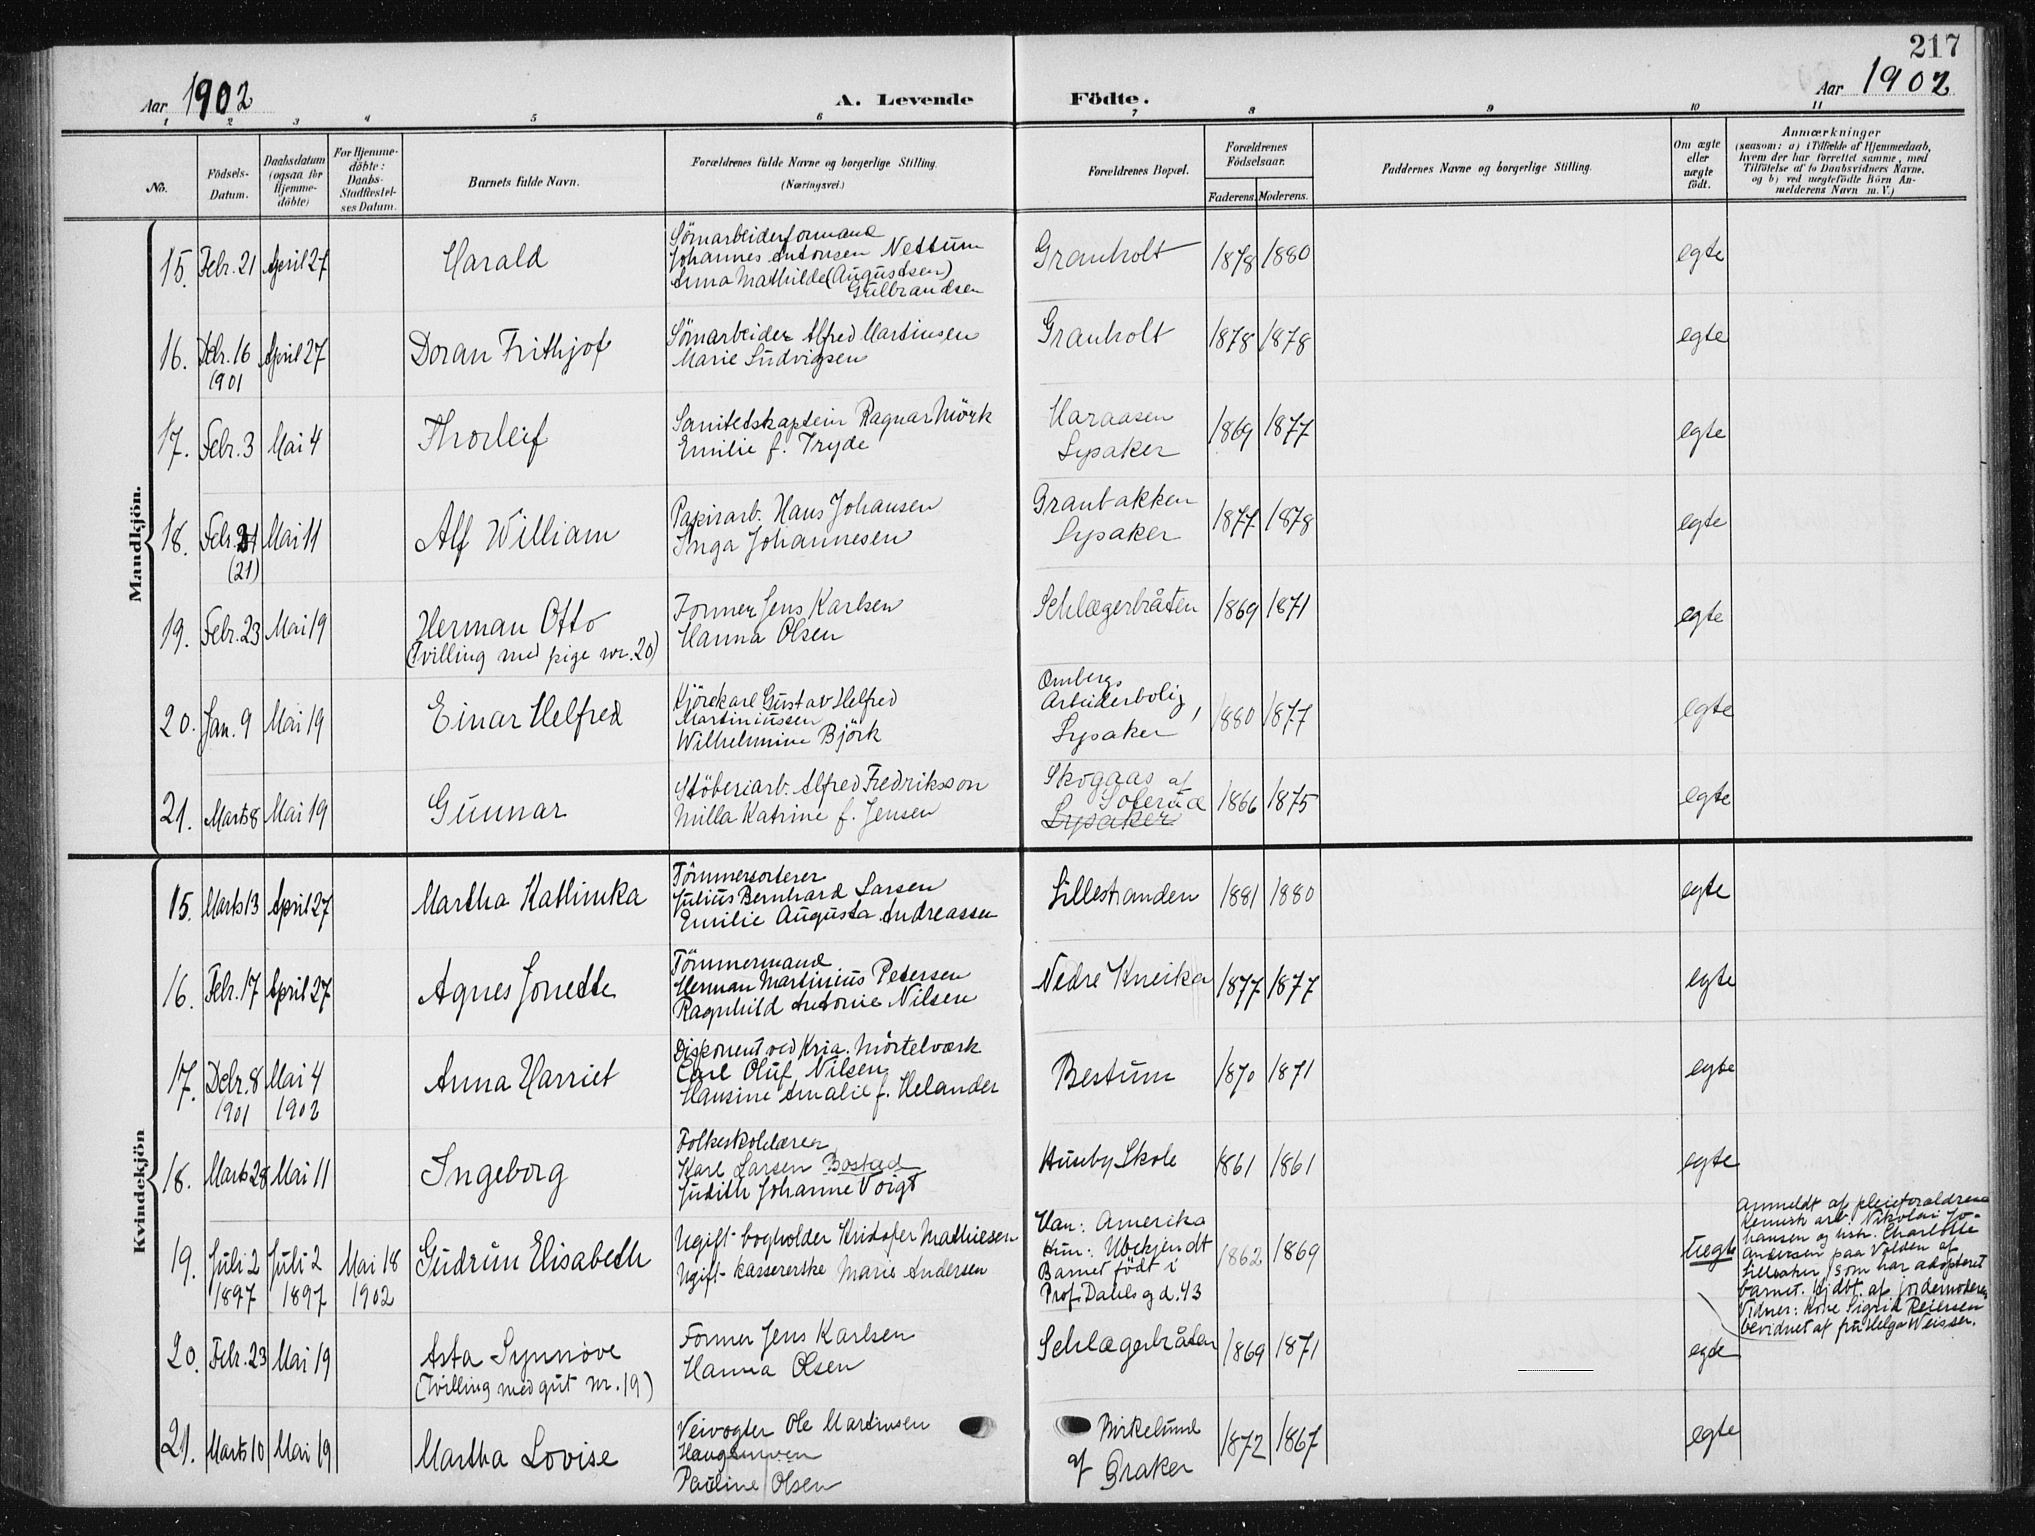 217
Aar 1902
A. Levende Födte.
Aar 1902
1 2 3 4 5 6 7 8 9 10 11
No.
Födsels-
Datum.
Daabsdatum
(ogsaa for
Hjemme-
döbte)
For Hjemme-
döbte:
Daabs-
Stadfæstel-
ses Datum.
Barnets fulde Navn.
Forældrenes fulde Navne og borgerlige Stilling.
(Næringsvei.)
Forældrenes Bopæl.
Forældrenes
Födselsaar.
Faderens. Moderens.
Faddernes Navne og borgerlige Stilling.
Om ægte
eller
uægte
födt.
Anmærkninger
(saasom: a) i Tilfælde af Hjemmedaab,
hvem der har forrettet samme, med
Tilföielse af to Daabsvidners Navne,
og b) ved uægtefödte Börn An-
melderens Navn m. V.)
Mandkjön.
15. Febr. 21 April 27 Harald
Sömarbeiderformand
Johannes Antonsen Nettum
Anna Mathilde (Augustsen)
Gulbrandsen
Granholt 1878 1880 egte
16. Debr. 16 April 27 Doran Frithjof
1901
Sömarbeider Alfred Martinsen
Marie Ludvigsen
Granholt 1878 1878 egte
17. Febr. 3 Mai 4 Thorleif
Sanitetskaptein Ragnar Mörk
Emilie f. Tryde
Haraasen
Lysaker
1869 1877 egte
18. Febr. 21 Mai 11 Alf William
(21)
Papirarb. Hans Johansen
Inga Johannesen
Granbakken
Lysaker
1877 1878 egte
19. Febr. 23 Mai 19 Herman Otto
(Tvilling med pige nr. 20)
Former Jens Karlsen
Hanna Olsen
Schlægerbråten 1869 1871 egte
20. Jan. 9 Mai 19 Einar Helfred
Kjörekarl Gustav Helfred
Martiniussen
Wilhelmine Björk
Ombergs
Arbeiderbolig,
Lysaker
1880 1877 egte
21. Marts 8 Mai 19 Gunnar
Stöberiarb. Alfred Fredriksson
Milla Katrine f. Jensen
Skogaas af
Sollerud
Lysaker
1866 1875 egte
Kvindekjön
15. Marts 13 April 27 Martha Kathinka
Tömmersorterer
Julius Bernhard Larsen
Emilie Augusta Andreassen
Lillestranden 1881 1880 egte
16. Febr. 17 April 27 Agnes Jonette
Tömmermand
Herman Martinius Petersen
Ragnhild Antonie Nilsen
Nedre Kneika 1877 1877 egte
17. Debr. 8 Mai 4 Anna Harriet
1901 1902
Disponent ved Kria. Mörtelværk
Carl Oluf Nilsen
Hansine Amalie f. Helander
Bestum 1870 1871 egte
18. Marts 28 Mai 11 Ingeborg
Folkeskolelærer
Karl Larsen Bostad
Judith Johanne Voigt
Huseby Skole 1861 1861 egte
19. Juli 2 Juli 2 Mai 18 Gudrun Elisabeth
1897 1897 1902
Ugift bogholder Kristofer Mathiesen
Ugift kassererske Marie Andersen
Han: Amerika
Hun: Ubekjendt
Barnet födt i
Prof. Dahls gd. 43
1862 1869 uegte
Anmeldt af pleieforældrene
kemisk arb. Nikolai Jo-
hansen og hstr. Charlotte
Andersen paa Volden af
Lilleaker, som har adopteret
barnet. Hjdbt. af jordemoderen
Vidner: Kone Sigrid Petersen
bevidnet af fru Helga Weisser.
20. Febr. 23 Mai 19 Asta Synnöve
(Tvilling med gut nr. 19)
Former Jens Karlsen
Hanna Olsen
Schlægerbråten 1869 1871 egte
21. Marts 10 Mai 19 Martha Lovise
Veivogter Ole Martinsen
Pauline Olsen
Birkelund
af Öraker
1872 1867 egte